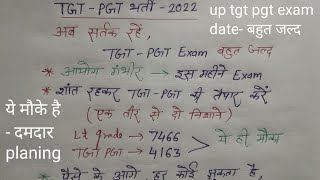 TGT - PGT भर्ती - 2022
up tgt pgt exam
date- बहुत जल्द
अब सतर्क रहें,
TGT - PGT Exam बहुत जल्द
* आयोग गंभीर → इस महीने Exam
* शांत रहकर TGT-PGT की तैयार करें
( एक तीर से दो निशाने )
ये मौके है
- दमदार
planing
Lt grade → 7466
TGT PGT → 4163
ये ही मौका
* पैसे के आगे हर कोई झुकता है,